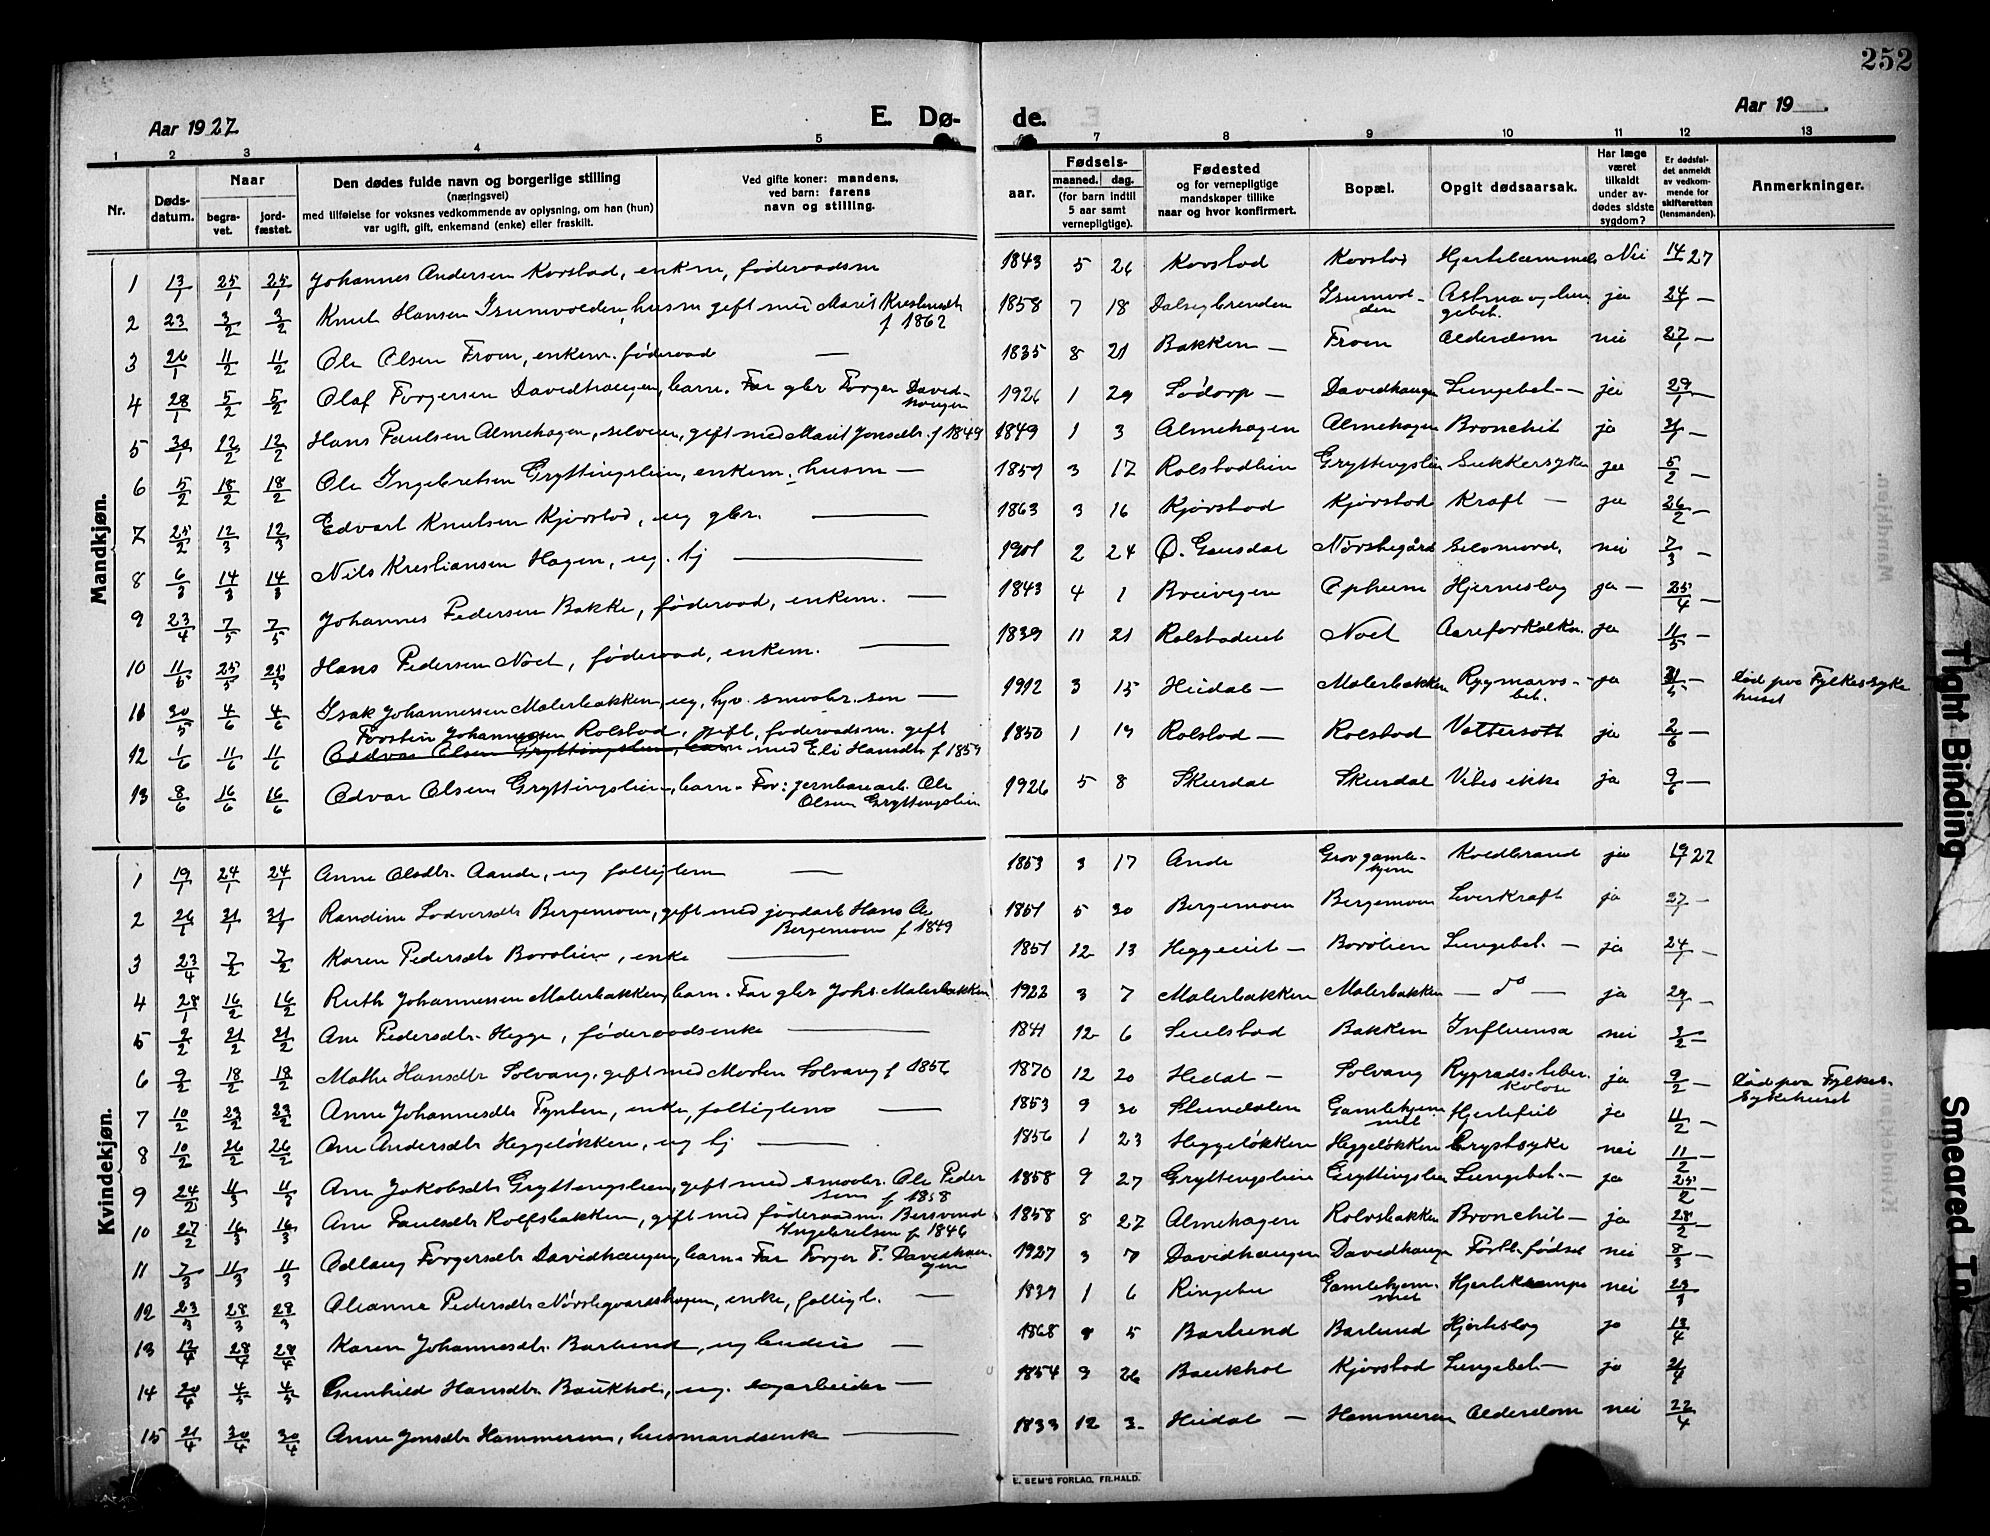 252
Aar 1927.
E. Dø-
de.
Aar 19
1 2 3 4 5 7 8 9 10 11 12 13
Nr.
Døds-
datum.
Naar
begra-
vet.
jord-
fæstet.
Den dødes fulde navn og borgerlige stilling
(næringsvei)
med tilføielse for voksnes vedkommende av oplysning, om han (hun)
var ugift, gift, enkemand (enke) eller fraskilt.
Ved gifte koner: mandens,
ved barn: farens
navn og stilling.
aar.
Fødsels-
maaned. dag.
(for barn indtil
5 aar samt
vernepligtige).
Fødested
og for vernepligtige
mandskaper tillike
naar og hvor konfirmert.
Bopæl.
Opgit dødsaarsak.
Har læge
været
tilkaldt
under av-
dødes sidste
sygdom?
Er dødsfal-
det anmeldt
av vedkom-
mende for
skifteretten
(lensmanden).
Anmerkninger.
Mandkjøn.
1 13/1 25/1 25/1 Johannes Andersen Korstad, enkm, føderaadsm 1843 5 26 Korstad Korstad Hjertelammels Nei 14/1 27
2 23 3/2 3/2 Knut Hansen Grumvolden, husm gift med Marit Kristensdtr 1858 7 18 Dalseg brenden Grumvol- Astma og lun ja 24/1 —
f 1862 den gebet.
3 26/1 11/2 11/2 Ole Olsen From, enkem. føderaad — 1835 8 21 Bakken — From Alderdom nei 27/1 —
4 28/1 5/2 5/2 Olaf Torgersen Davidhaugen, barn. Far gbr Torger David- 1926 1 29 Sødorp — Davidhaugen Lungebet. — ja 29/1 —
haugen
5 30/1 12/2 12/2 Hans Paulsen Almehagen, selveier, gift med Marit Jonsdtr. f 1849 1849 1 3 Almehagen Almehagen Bronchit ja 31/1 —
6 5/2 18/2 18/2 Ole Ingebretsen Gryttingslien, enkem. husm — 1857 3 17 Rolstadlien Gryttingslien Sukkersyke ja 5/2 —
7 25/2 12/3 12/3 Edvart Knutsen Kjørstad, ug gbr. — 1863 3 16 Kjørstad Kjørstad Kraft — ja 26/2 —
8 6/3 14/3 14/3 Nils Kristiansen Hagen, ug. tj — 1901 2 24 Ø. Gausdal Nørstegård Selvmord. nei 7/3 —
9 23/4 7/5 7/5 Johannes Pedersen Bakke, føderaad, enkem. — 1843 4 1 Breivegen Opheim Hjerneslag ja — 25/4 —
10 11/5 25/5 25/5 Hans Pedersen Noet, føderaad, enkem. — 1839 11 21 Rolstadeiet Noet Aareforkalkn. ja 11/5 —
11 30/5 4/6 4/6 Isak Johannessen Malerbakken, ug, hjv. smaabr. søn — 1912 3 15 Heidal — Malerbakken Rygmarvs- ja 31/5 — død paa Fylkessyke
bet. huset
Torstein Johannessen Rolstad, gift, føderaadsm. gift
12 1/6 11/6 11/6 Oddvar Olsen Gryttingslien, barn med Eli Hansdtr f 1859 1850 1 19 Rolstad — Rolstad Vattersott ja 2/6 —
13 8/6 16/6 16/6 Odvar Olsen Gryttingslien, barn. Far: jernbanearb. Ole 1926 5 8 Skurdal Skurdal Vites ikke ja 9/6 —
Olsen Gryttingslien
Kvindekjøn.
1 19/1 24/1 24/1 Anne Olsdtr. Aande, ug fattiglem — 1853 3 17 Ande Grovgamle- Koldbrand ja 19/1 27
hjem
2 26/1 31/1 31/1 Randine Lodversdtr Bergemoen, gift med jordarb Hans O. 1851 5 30 Bergemoen Bergemoen Leverkraft ja 27/1 —
Bergemoen f 1849
3 23/4 7/2 7/2 Karen Pedersdtr Borolien, enke — 1851 12 13 Heggeeiet — Borolien Lungebet. — ja 24/1 —
4 28/1 16/2 16/2 Ruth Johannessen Malerbakken, barn. Far gbr Johs. Malerbakken 1922 3 7 Malerbakken Malerbakken — do — ja 29/1 —
5 2/2 21/2 21/2 Ane Pedersdtr. Hegge, føderaadsenke — 1841 12 6 Sulstad Bakken Influensa nei 3/2 —
6 9/2 18/2 18/2 Mathe Hansdtr Solvang, gift med Morten Solvang f 1856 1870 12 20 Hedal — Solvang Rygrads-tuber- ja 9/2 — død paa Fylkes-
kulose sykehuset
7 10/2 23/2 23/2 Anne Johannesdtr Tynten, enke, fattiglem — 1853 9 30 Slundalen Gamlehjem- Hjertefeil ja 11/2 —
met
8 10/2 26/2 26/2 Ane Andersdtr Heggeløkken, ug tj — 1856 1 23 Heggeløkken Heggeløkken Brystsyke nei 11/2 —
9 24/2 11/3 11/3 Ane Jakobsdtr Gryttingslien, gift med smaabr. Ole Peder 1858 9 27 Gryttingslien Gryttingslien Lungebet. — ja 25/2 —
sen f 1858
10 27/2 16/3 16/3 Ane Paulsdtr Rolfsbakken, gift med føderaadm. Bersvend 1858 8 27 Almehagen Rolvsbakken Bronchit — ja 28/2 —
Ingebretsen f 1846
11 7/3 11/3 11/3 Odlaug Torgersdtr Davidhaugen, barn. Far Torger T. Davidhau- 1927 3 7 Davidhaugen Davidhaugen Fortl. fødsel nei 8/3 —
gen
12 23/3 28/3 28/3 Oleanne Pedersdtr Nørstegaardshagen, enke, fattigl. — 1839 1 6 Ringebu Gamlehjem- Hjertekrampe nei 23/3
met
13 12/4 28/4 28/4 Karen Johannesdtr. Barlund, ug budeie — 1868 8 5 Barlund Barlund Hjerteslag ja 13/4
14 20/4 4/5 4/5 Gunhild Hansdtr. Baukhol, ug. dagarbeider — 1854 9 26 Baukhol Kjørstad Lungebet. — ja 21/4
15 21/4 30/4 30/4 Anne Jonsdtr Hammeren, husmandsenke — 1833 12 3 Heidal — Hammeren Alderdom nei 22/4
E. SEM'S FORLAG, FR.HALD.
Tight Binding
Smeared Ink